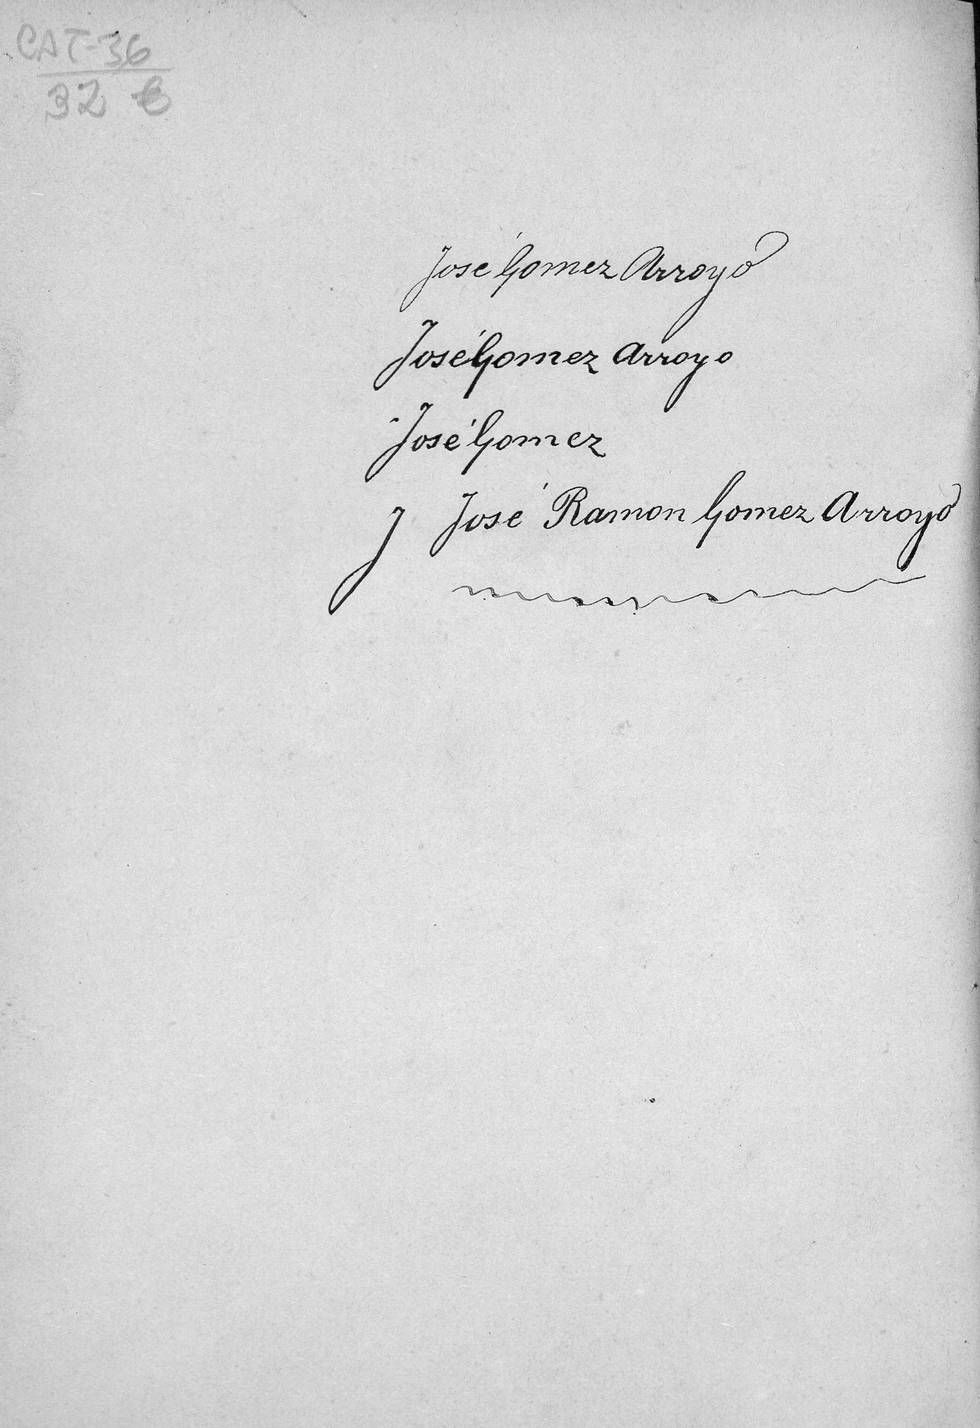 CAT-36
32 €
José Gomez Arroyo
José Gomez Arroyo
José Gomez
J José Ramon Gomez Arroyo